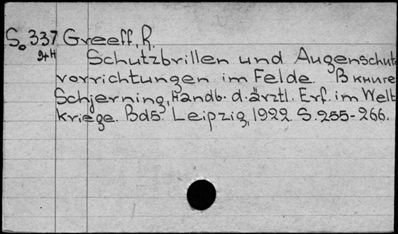 So 337 Greeff, R.
9+H Schutzbrillen und Augenschutz
vorrichtungen im Felde. В книге
Schjerning, Handb. d. ärztl. Erf. im Welt
kriege. Bd5 Leipzig, 1922. S. 255-266.